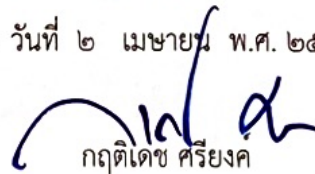 วันที่ ๒ เมษายน พ.ศ.
กฤติเดช ศรียงค์